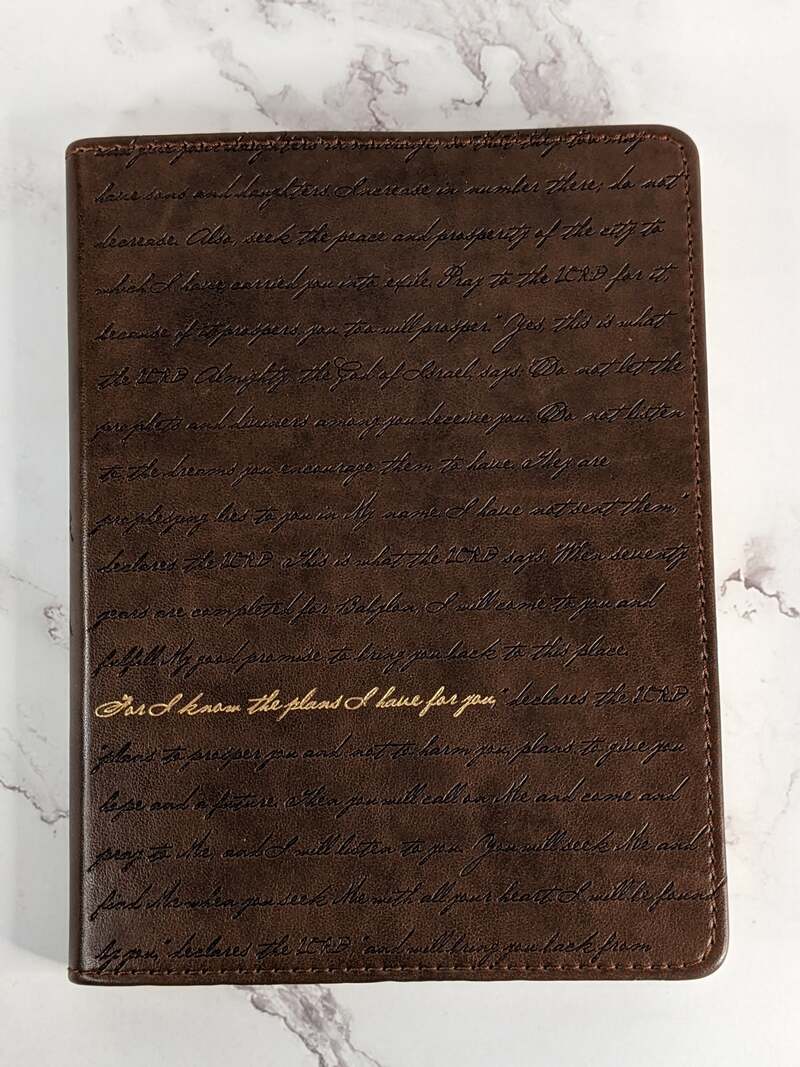 and give your daughters in marriage, so that they too may
have sons and daughters. Increase in number there; do not
decrease. Also, seek the peace and prosperity of the city to
which I have carried you into exile. Pray to the LORD for it,
because if it prospers, you too will prosper." Yes, this is what
the LORD Almighty, the God of Israel, says: "Do not let the
prophets and diviners among you deceive you. Do not listen
to the dreams you encourage them to have. They are
prophesying lies to you in My name. I have not sent them,"
declares the LORD. This is what the LORD says: "When seventy
years are completed for Babylon, I will come to you and
fulfill My good promise to bring you back to this place.
For I know the plans I have for you," declares the LORD,
"plans to prosper you and not to harm you, plans to give you
hope and a future. Then you will call on Me and come and
pray to Me, and I will listen to you. You will seek Me and
find Me when you seek Me with all your heart. I will be found
by you," declares the LORD, "and will bring you back from